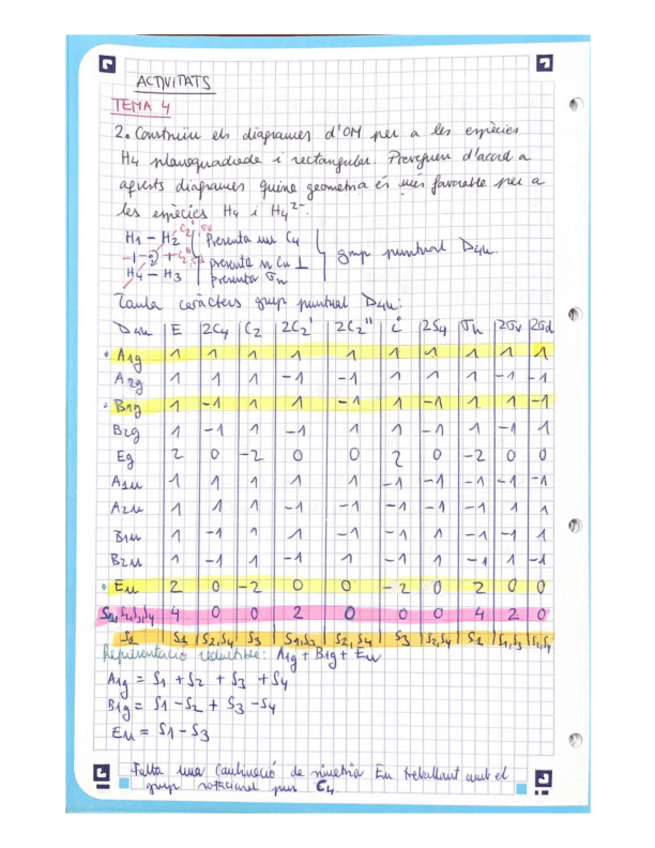 ACTIVITATS
TEMA 4
2. Construiu els diagrames d'OM per a les espècies
H4 planoquadrada i rectangular. Prevegeu d'acord a
aquests diagrames quina geometria és més favorable per a
les espècies H4 i H4²⁻.
H1 - H2 C2' σv Presenta un C4
C2'' presenta n C2 ⊥ grup puntual D4h.
H4 - H3 presenta σh
Taula caràcters grup puntual D4h:
D4h | E | 2C4 | C2 | 2C2' | 2C2'' | i | 2S4 | σh | 2σv | 2σd
A1g 1 1 1 1 1 1 1 1 1 1
A2g 1 1 1 -1 -1 1 1 1 -1 -1
B1g 1 -1 1 1 -1 1 -1 1 1 -1
B2g 1 -1 1 -1 1 1 -1 1 -1 1
Eg 2 0 -2 0 0 2 0 -2 0 0
A1u 1 1 1 1 1 -1 -1 -1 -1 -1
A2u 1 1 1 -1 -1 -1 -1 -1 1 1
B1u 1 -1 1 1 -1 -1 1 -1 -1 1
B2u 1 -1 1 -1 1 -1 1 -1 1 -1
Eu 2 0 -2 0 0 -2 0 2 0 0
S1,S2,S3,S4 4 0 0 2 0 0 0 4 2 0
S1 | S1 | S2,S4 | S3 | S1,S3 | S2,S4 | S3 | S2,S4 | S1 | S1,S3 | S2,S4
Representació reductible: A1g + B1g + Eu
A1g = S1 + S2 + S3 + S4
B1g = S1 - S2 + S3 - S4
Eu = S1 - S3
Falta una Combinació de simetria Eu treballant amb el
grup rotacional pur C4